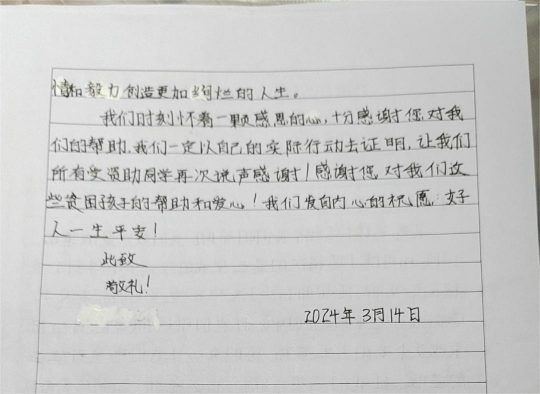 情和毅力创造更加绚烂的人生。
我们时刻怀着一颗感恩的心,十分感谢您对我
们的帮助。我们一定以自己的实际行动去证明,让我们
所有受资助同学再次说声感谢!感谢您对我们这
些贫困孩子的帮助和爱心!我们发自内心的祝愿:好
人一生平安!
此致
敬礼!
2024年3月14日